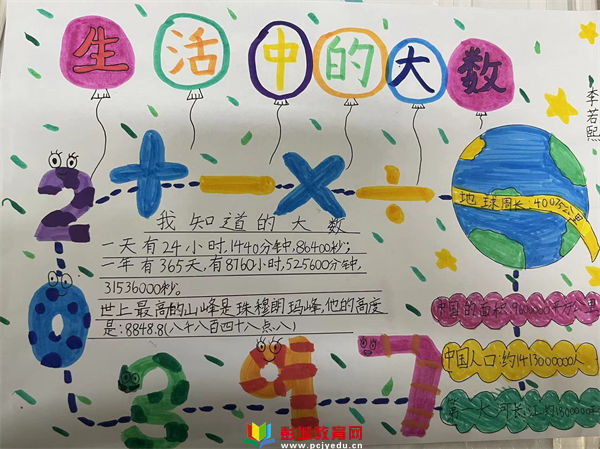 生活中的大数
李若熙
地球周长:40076公里
我知道的大数
一天有24小时,1440分钟,86400秒;
一年有365天,有8760小时,525600分钟,
31536000秒。
世上最高的山峰是珠穆朗玛峰,他的高度
是:8848.8(八千八百四十八点八)
中国的面积:9600000平方公里
中国人口:约1413000000人
第一大河长江
2
0
3
9
7
彭城教育网
www.pcjyedu.cn